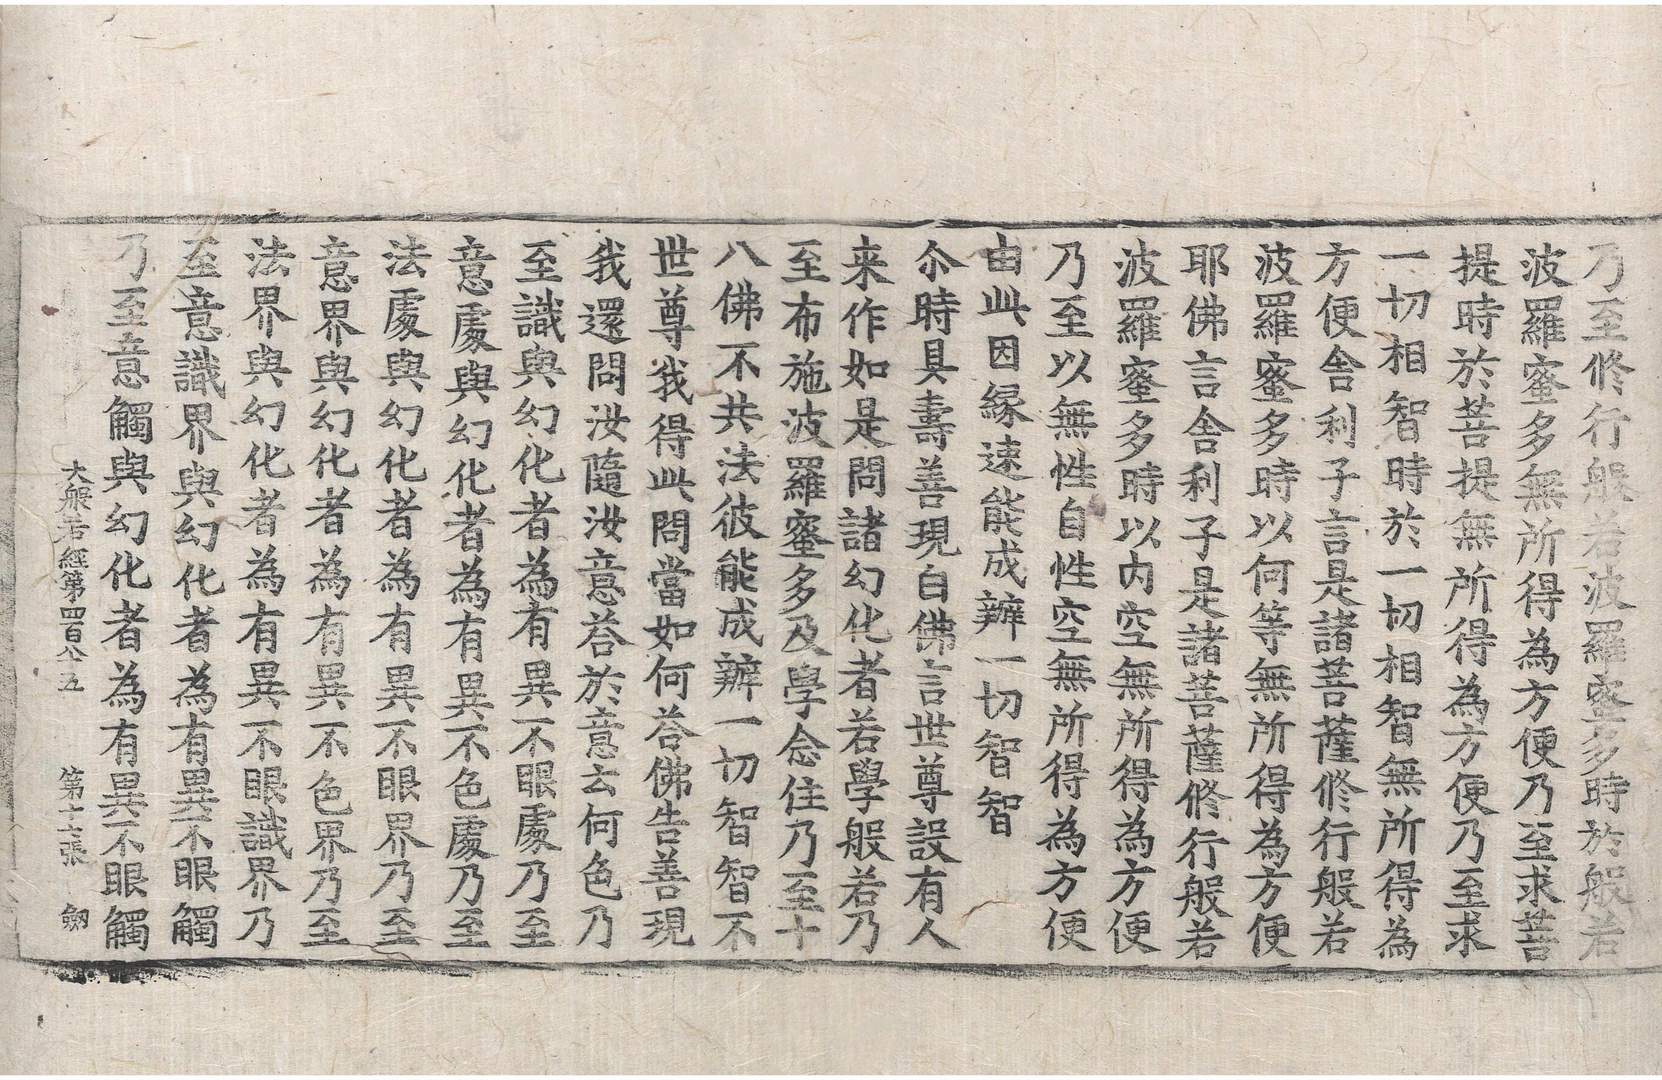 乃至修行般若波羅蜜多時於般若
波羅蜜多無所得為方便乃至求菩
提時於菩提無所得為方便乃至求
一切相智時於一切相智無所得為
方便舍利子言是諸菩薩修行般若
波羅蜜多時以何等無所得為方便
耶佛言舍利子是諸菩薩修行般若
波羅蜜多時以内空無所得為方便
乃至以無性自性空無所得為方便
由此因緣速能成辦一切智智
尒時具壽善現白佛言世尊設有人
来作如是問諸幻化者若學般若乃
至布施波羅蜜多及學念住乃至十
八佛不共法彼能成辦一切智智不
世尊我得此問當如何荅佛告善現
我還問汝隨汝意荅於意云何色乃
至識與幻化者為有異不眼處乃至
意處與幻化者為有異不色處乃至
法處與幻化者為有異不眼界乃至
意界與幻化者為有異不色界乃至
法界與幻化者為有異不眼識界乃
至意識界與幻化者為有異不眼觸
乃至意觸與幻化者為有異不眼觸
大般若經第四百八十五 第十六張 劒